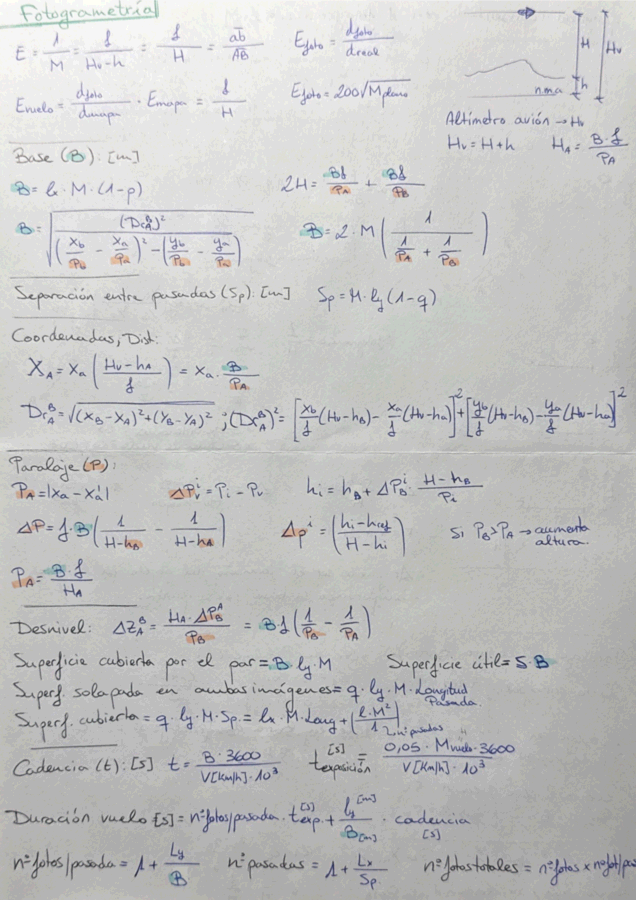 Fotogrametría
E = 1/M = f/(Hv-h) = f/H = ab/AB
Efoto = dfoto/dreal
Evuelo = dfoto/dmapa · Emapa = f/H
Efoto = 200√Mplano
H
Hv
h
n.m.a
Altímetro avión → Hv
Hv = H+h HA = B·f/PA
Base (B): [m]
B = lx · M · (1-p)
2H = Bf/PA + Bf/PB
B = √((DrAB)²/((xb/Pb - xa/Pa)² - (yb/Pb - ya/Pa)))
B = 2·M (1/(1/PA + 1/PB))
Separación entre pasadas (Sp): [m] Sp = M·ly(1-q)
Coordenadas, Dist:
XA = xa ((Hv-hA)/f) = xa · B/PA
DrAB = √((XB-XA)²+(YB-YA)²) ; (DrAB)² = [xb/f (Hv-hB) - xa/f (Hv-ha)]² + [yb/f (Hv-hB) - ya/f (Hv-ha)]²
Paralaje (P):
PA = |xa - xa'| ΔPvi = Pi - Pv hi = hB + ΔPBi · (H-hB)/Pi
ΔP = f·B (1/(H-hB) - 1/(H-hA)) Δpi = ((hi-href)/(H-hi)) Si PB>PA → aumenta
altura.
PA = B·f/HA
Desnivel: ΔZAB = HA·ΔPBA/PB = Bf (1/PB - 1/PA)
Superficie cubierta por el par = B ly·M Superficie útil = S·B
Superf. solapada en ambas imágenes = q·ly·M·Longitud
Pasada.
Superf. cubierta = q·ly·M·Sp = lx·M·Long + (l·M²/1)
2, nº pasadas
Cadencia (t): [s] t = B·3600/(V[Km/h]·10³) texposición [s] = 0,05·Mvuelo·3600/(V[Km/h]·10³)
Duración vuelo [s] = nºfotos/pasada · texp.[s] + ly[m]/B[m] · cadencia
[s]
nºfotos/pasada = 1 + Ly/B nº pasadas = 1 + Lx/Sp nºfotostotales = nºfotos x nºfot/pas